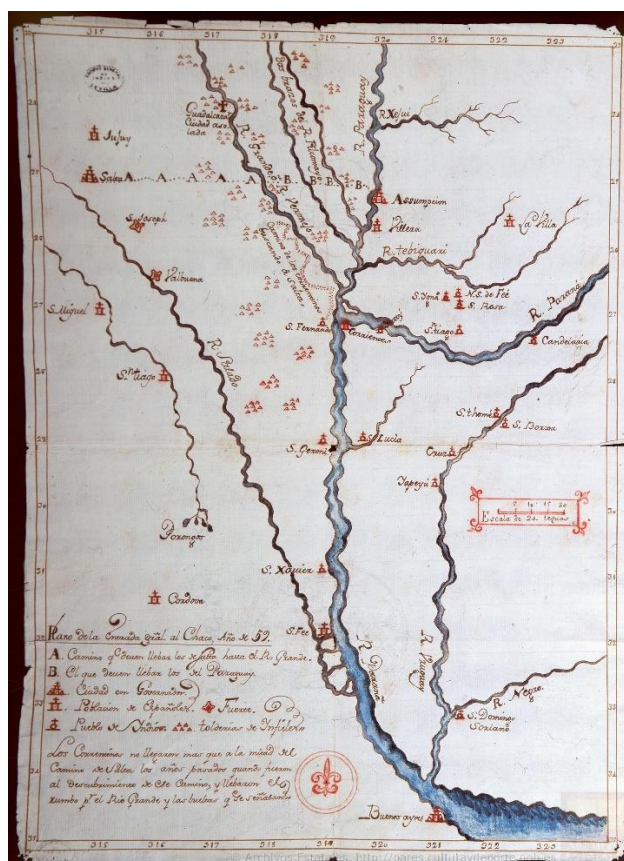 315 316 317 318 319 320 321 322 323
ARCHIVO GENERAL DE INDIAS SEVILLA
Guadalcazar
Ciudad aso
lada
R. Grande ó R. Vermejo
Dos brazos de R. Pilcomayo
R. Paraguay
R. Xejui
Jujuy
Salta A A A A A B B B B
Assumpcion
Villeta
La Villa
R. tebiquari
S. Joseph
Valbuena
S. Miguel
S. tiago
R. Salado
S. Fernando
Corrientes
N. S. de Fée
S. Rosa
S. tiago
R. Paraná
Candelaria
S. thomé
S. Borxa
S. Lucia
S. Geroni
Cruz
Yapeyú
5 10 15 20
Escala de 20 leguas
Porongos
S. Xavier
Cordova
S. Fée
R. Paraná
R. Vruguay
R. Negro
S. Domingo
Soriano
Buenos ayres
Plano de la Entrada gral al Chaco, Año de 59.
A. Camino q deven llebar los de Salta hasta el R Grande.
B. El que deven llebar los del Paraguay.
Ciudad con Governador
Poblacion de Españoles. Fuerte.
Pueblo de Yndios tolderias de Infieles
Los Correntinos no llegaron mas que a la mitad del
Camino de Salta los años pasados quando fueron
al descubrimiento de este Camino, y llebaron el
rumbo pr el Rio Grande y las bueltas q se señalan
317 318 319 320 321 322 323
Archivos Estatales, http://pares.culturaydeporte.gob.es